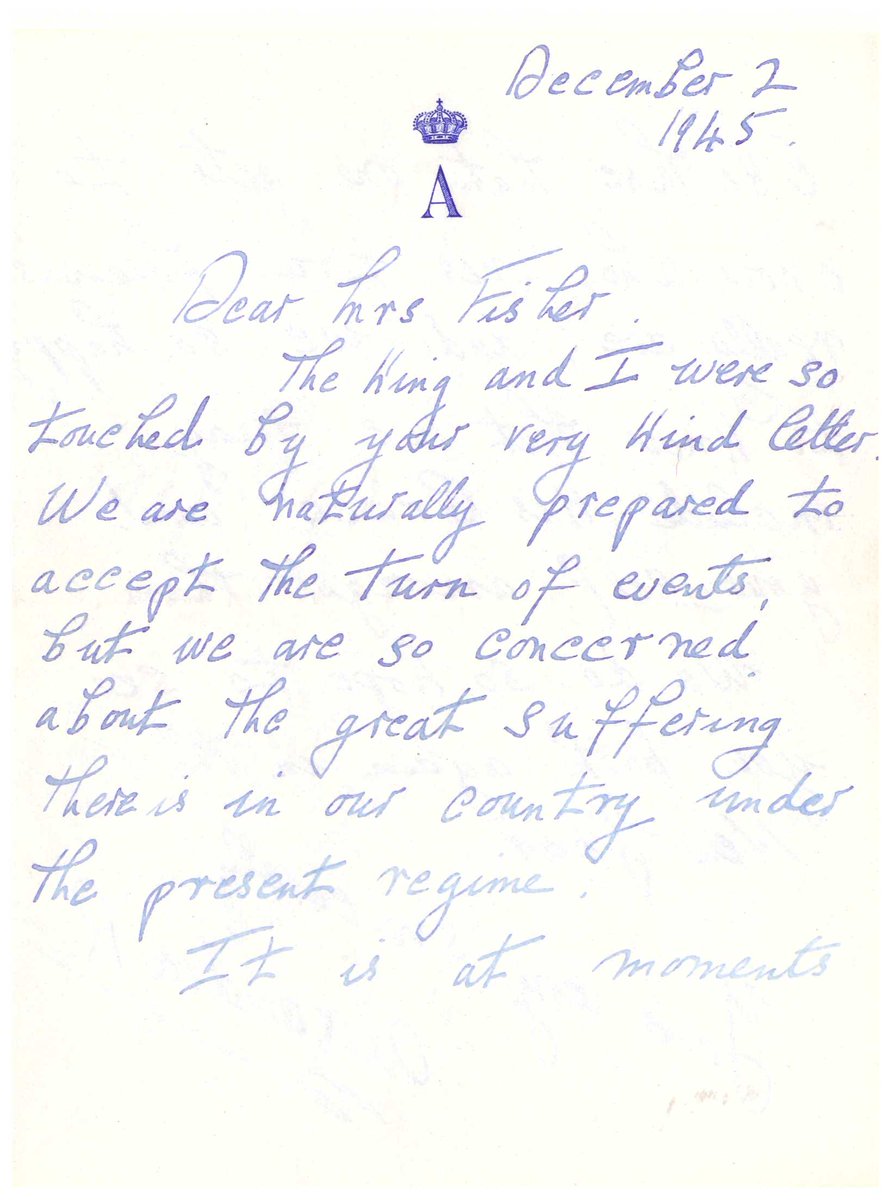 December 2
1945.
A
Dear Mrs Fisher.
The King and I were so
touched by your very kind letter.
We are naturally prepared to
accept the turn of events,
but we are so concerned
about the great suffering
there is in our country under
the present regime.
It is at moments